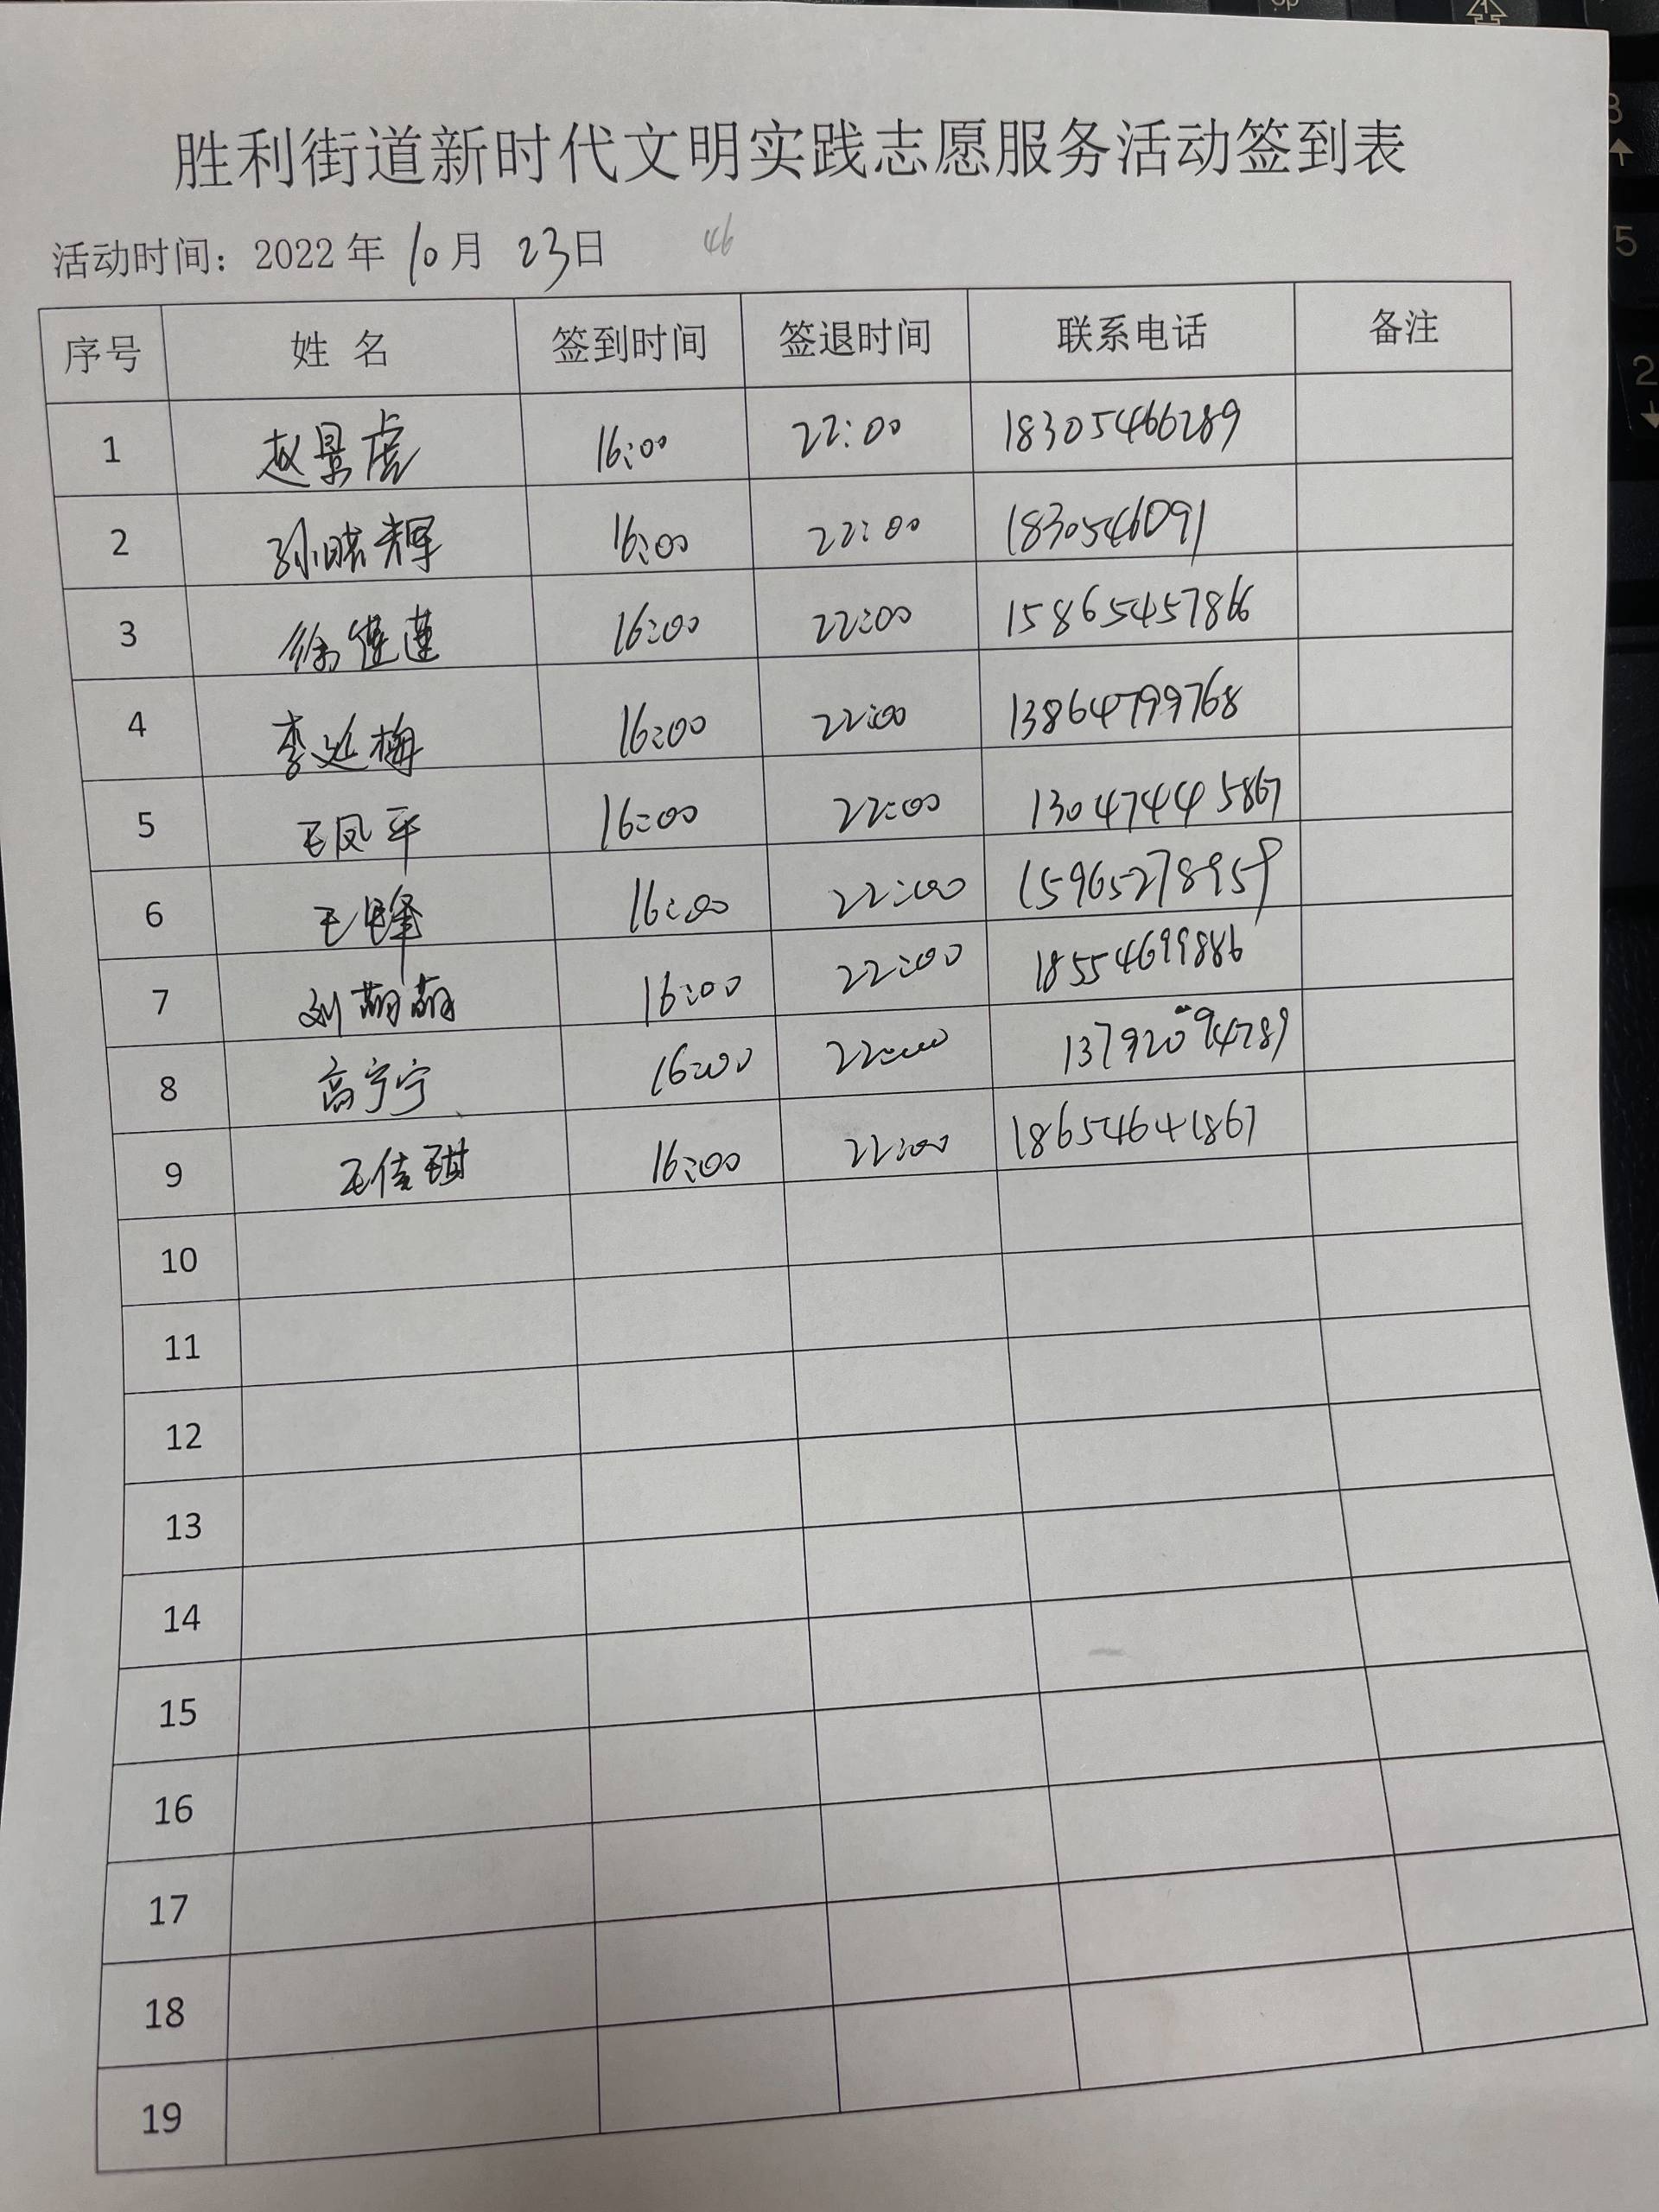 胜利街道新时代文明实践志愿服务活动签到表
活动时间：2022 年 10 月 23 日 46
序号 姓 名 签到时间 签退时间 联系电话 备注
1 赵景虎 16:00 22:00 18305466289
2 孙晓辉 16:00 22:00 1830546091
3 徐莲 16:00 22:00 15865457866
4 李延梅 16:00 22:00 13864799768
5 王凤平 16:00 22:00 13047445867
6 王峰 16:00 22:00 15965278959
7 刘萌萌 16:00 22:00 18554699886
8 高宁宁 16:00 22:00 13792094789
9 王佳琪 16:00 22:00 18654641867
10
11
12
13
14
15
16
17
18
19